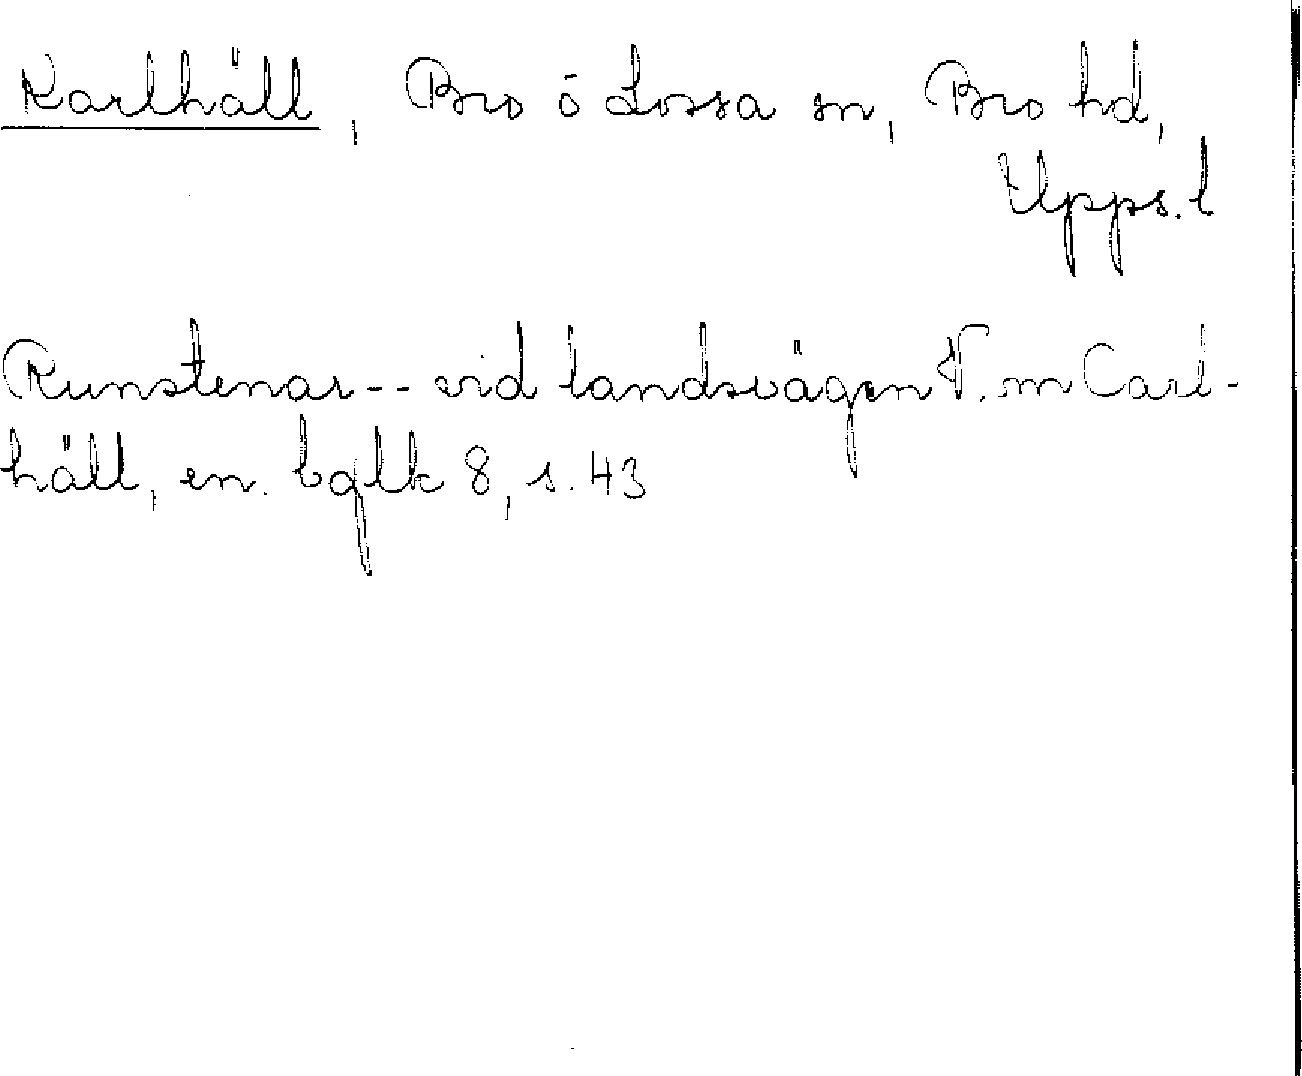 Karlhäll, Bro o Lossa sn, Bro hd,
Upps. l
Runstenar -- vid landsvägen V. om Carl-
häll, en. bglk 8, s. 43